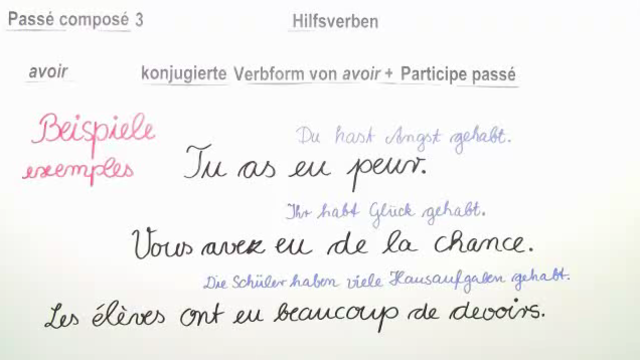 Passé composé 3 Hilfsverben
avoir konjugierte Verbform von avoir + Participe passé
Beispiele
exemples
Du hast Angst gehabt.
Tu as eu peur.
Ihr habt Glück gehabt.
Vous avez eu de la chance.
Die Schüler haben viele Hausaufgaben gehabt.
Les élèves ont eu beaucoup de devoirs.